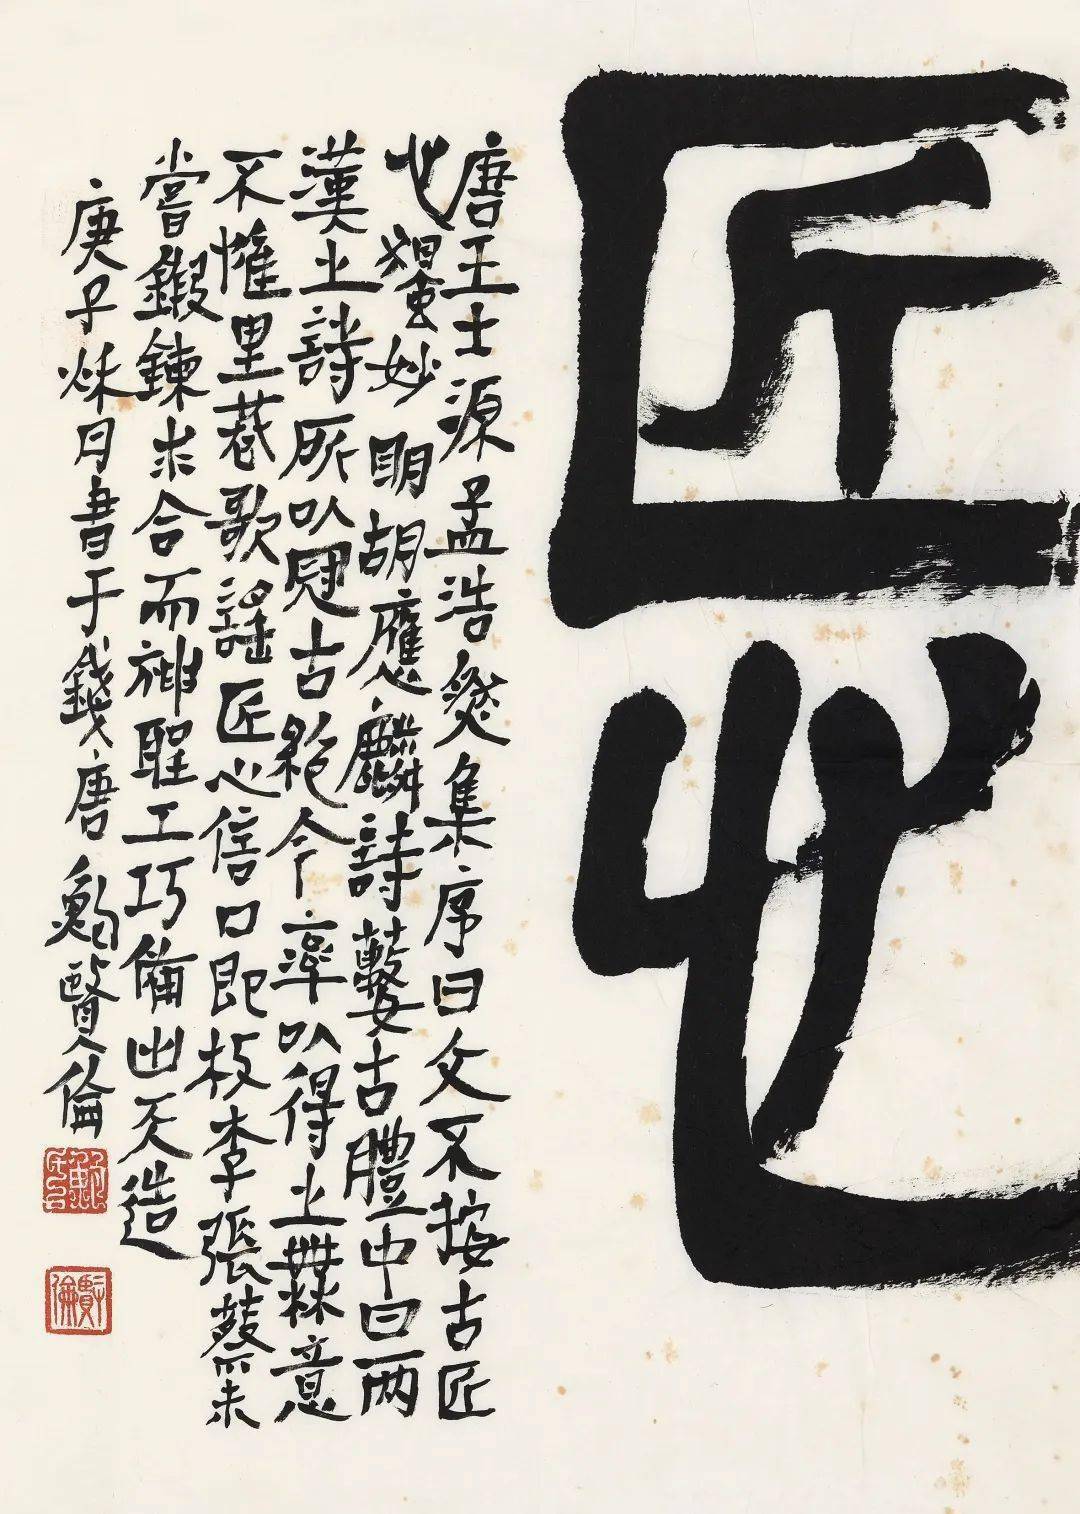 匠心
唐王士源孟浩然集序曰文不按古匠
心獨妙明胡應麟詩藪古體中曰两
漢之詩所以冠古絶今率以得之無意
不惟里巷歌謡匠心信口即枚李張蔡未
嘗鍛鍊求合而神聖工巧備出天造
庚子秋月書于錢唐 賢倫
賢倫